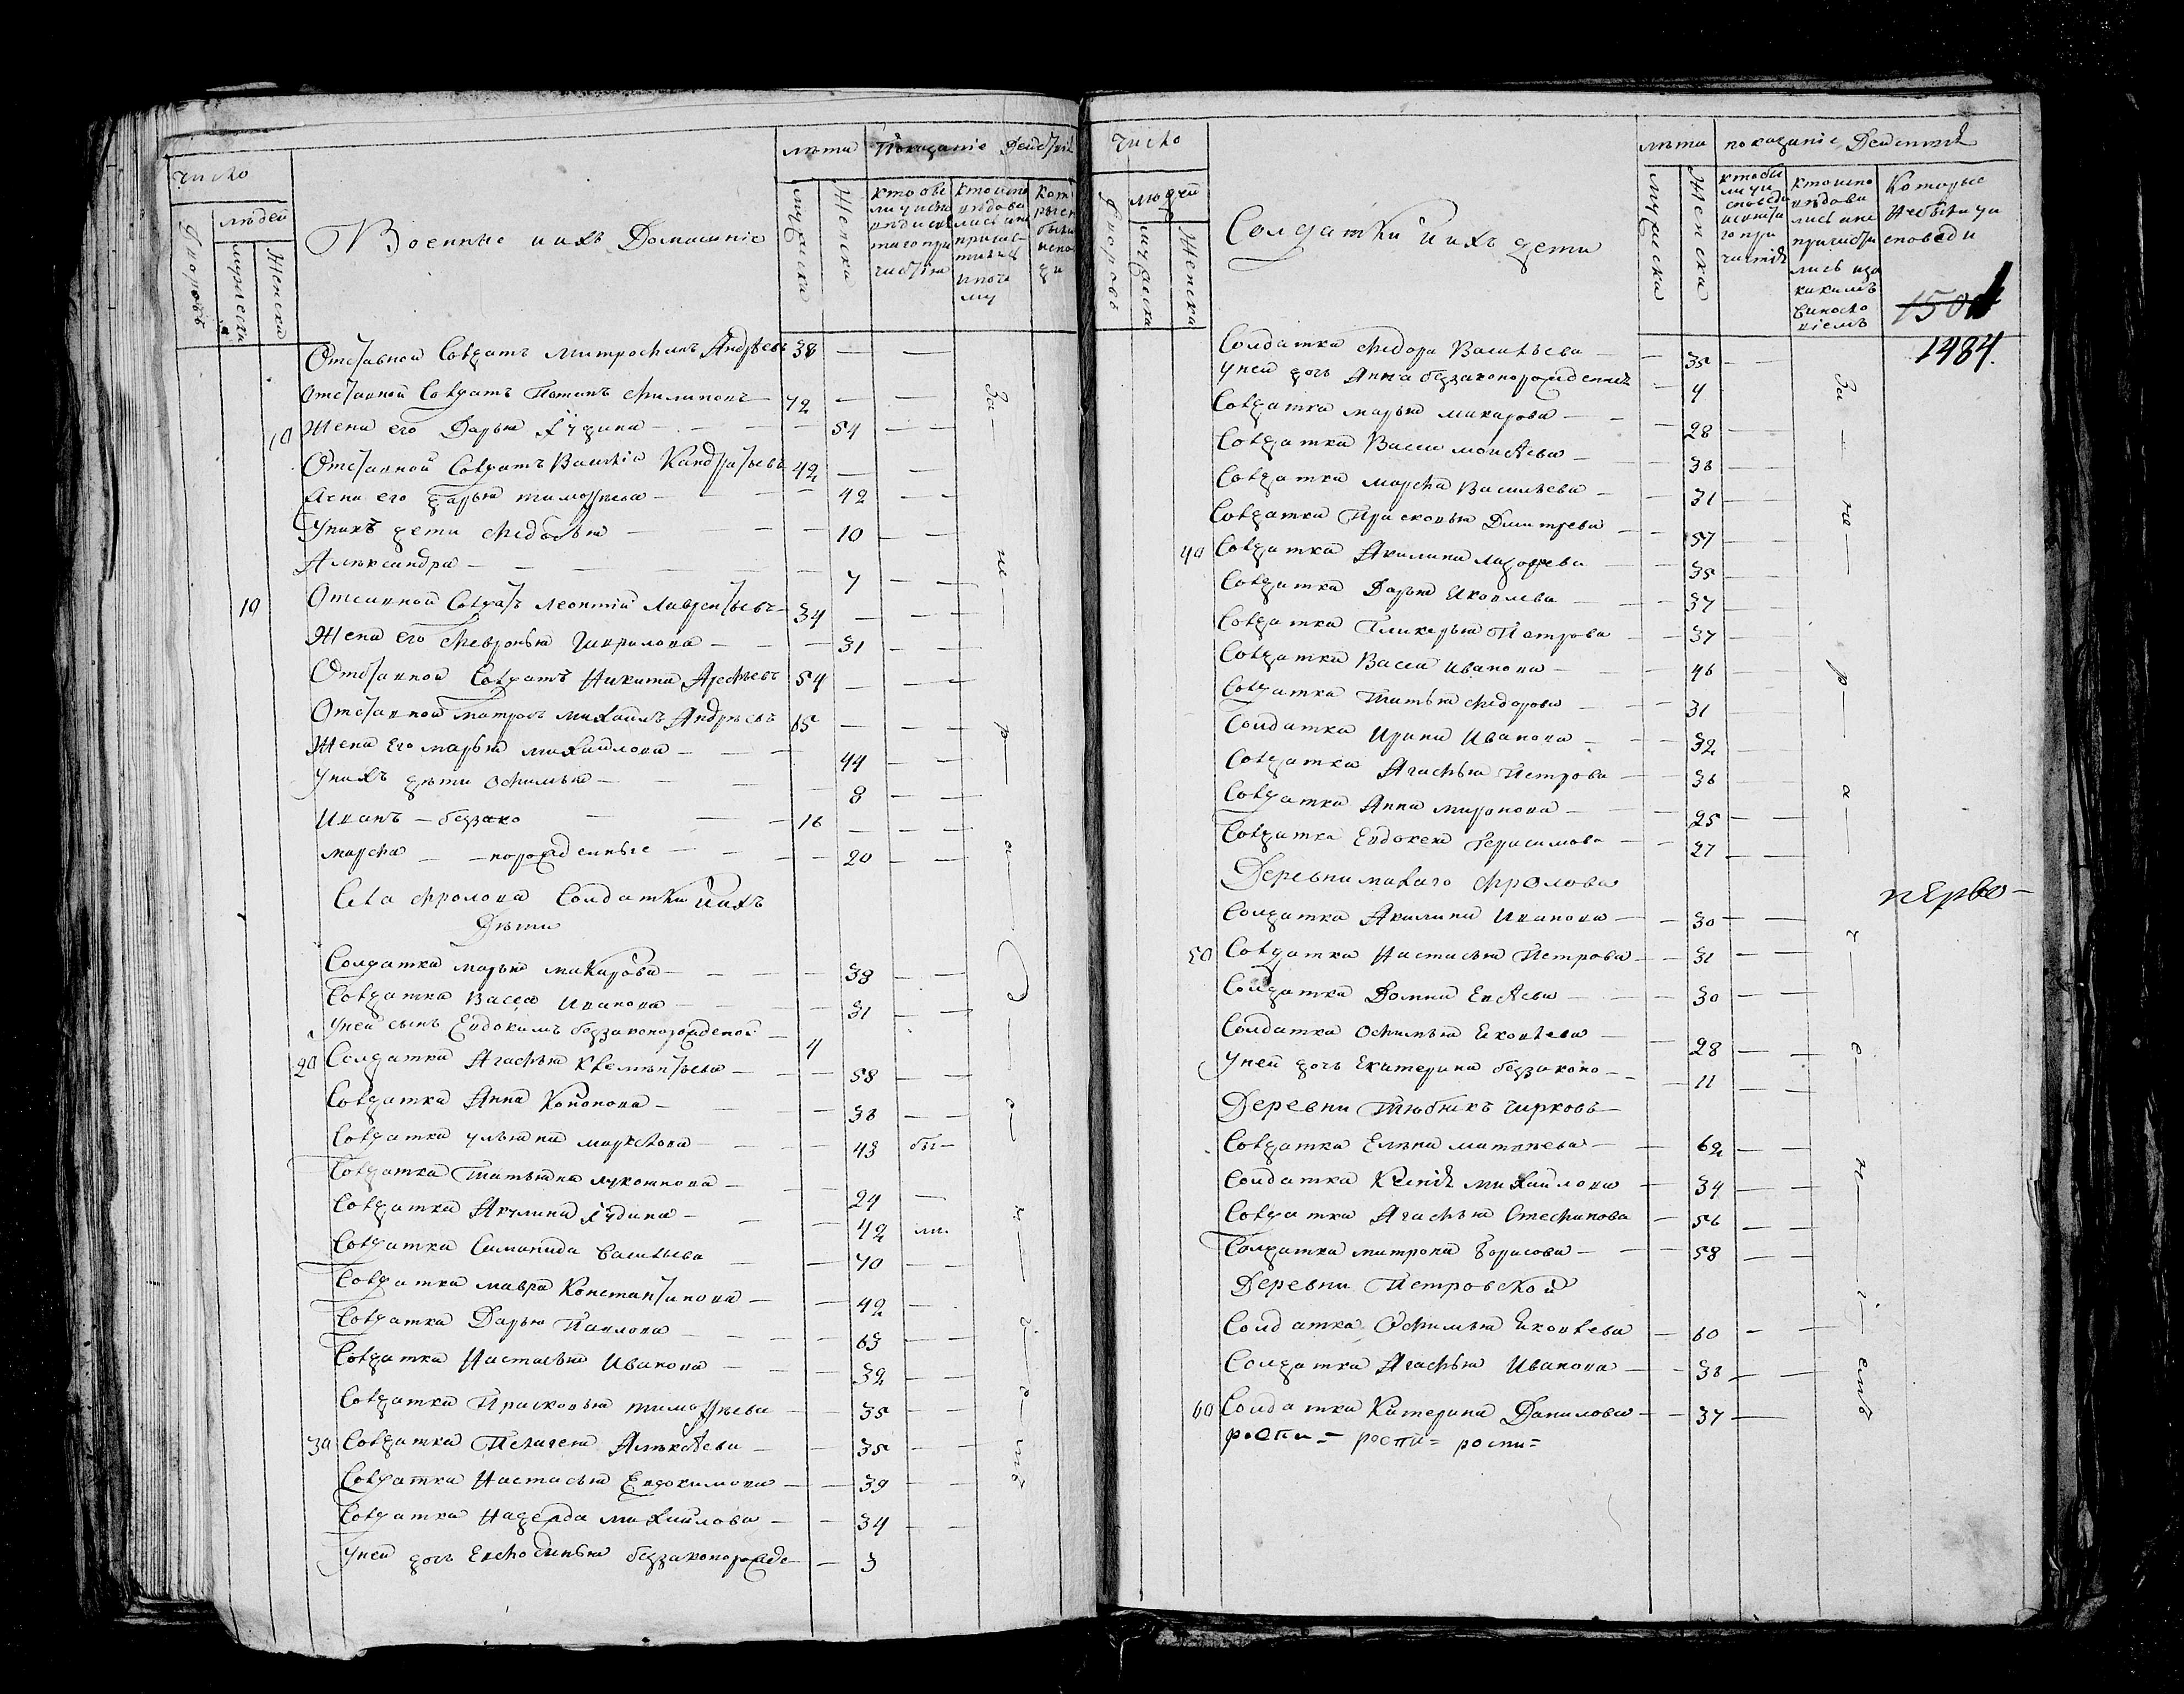 Число
людей
Дворовъ
мужеска
Женска
Военные и ихъ Домашніе
лѣта
мужеска
Женска
Показаніе Действъ
Отставной Солдатъ Митрофанъ Андрѣевъ 38 — —
Отставной Солдатъ Потапъ Филиповъ 72 — —
10 Жена его Дарья — 54 — —
Отставной Солдатъ Василій Кандратьевъ 42 — —
Жена его Дарья Тимофѣева — 42 — —
Унихъ дети Федосья — — 10 — —
Александра — — 7 — —
10 Отставной Солдатъ Леонтій Лаврентьевъ 34 — —
Жена его Февронья Гаврилова — — 31 — —
Отставной Солдатъ Никита Арефьевъ 54 — —
Отставной матросъ Михаилъ Андрѣевъ 65 — —
Жена Его марья михайлова — — 44 — —
Унихъ дѣти Офимья — — 8 — —
Иванъ — беззако — — 16 — — —
марфа — — норожденные — — 20 — —
Села Фролова Солдатки и ихъ
Дѣти
Солдатка марья макарова — — 38 — —
Солдатка Васса Иванова — — 31 — —
Уней сынъ Евдокимъ беззаконорожденой — 4
20 Солдатка Агафья Клементьева — — 58 — —
Солдатка Анна Кононова — — 38 — —
Солдатка ульяна маркелова — — 43 бы —
Солдатка Татьяна лукоянова — — 24 —
Солдатка Акулина — — 42 ли.
Солдатка Саманида Васильева — — 40 — —
Солдатка мавра Константинова — — 42 —
Солдатка Дарья Павлова — — 63 — —
Солдатка Настасья Иванова — — 32 — —
Солдатка Прасковья тимофѣева — — 35 — —
30 Солдатка Пелагея Алексѣева — — 35 — —
Солдатка Настасья Евдокимова — — 39 — —
Солдатка Надежда михайлова — — 34 — —
Уней дочь Евфосинья беззаконорожде — — 3
За — не — р — а —
Число
людей
Дворовъ
мужеска
Женска
Солдатки и ихъ дети
лѣта
мужеска
Женска
показаніе Действъ
Которые Небыли уисповеди
1484.
Солдатка Федора Васильева — — 35 — —
Уней дочь Анна беззаконорожденна — 4
Солдатка марья макарова — — 28 — —
Солдатка Васса моисѣева — — 38 — —
Солдатка марфа Васильева — — 31 — —
Солдатка Прасковья Дмитрева — — 57 — —
40 Солдатка Акилина лазорева — — 35 — —
Солдатка Дарья Яковлева — — 37 — —
Солдатка Гликерья Петрова — — 37 — —
Солдатка Васса Иванова — — 46 — —
Солдатка Татьяна Федорова — — 31
Солдатка Ирина Иванова — — 32
Солдатка Агафья Петрова — — 38
Солдатка Анна миронова — — 25 — —
Солдатка Евдокея Герасимова — — 27 — —
Деревни малаго Фролова
Солдатка Акилина Иванова — — 30 — —
50 Солдатка Настасья Петрова — — 31 — —
Солдатка Домна Евсѣева — — 30 — —
Солдатка Офимья Яковлева — — 28 — —
Уней дочь Екатерина беззаконо — — 11 — —
Деревни Тюбякъ чирковъ
Солдатка Елена матвѣева — — 62 — —
Солдатка Ксенія михайлова — — 34 — —
Солдатка Агафья Стефанова — — 56 — —
Солдатка митрона Борисова — — 58 — —
Деревни Петровской
Солдатка Офимья Яковлева — — 60 — —
Солдатка Агафья Иванова — — 38 — —
60 Солдатка Катерина Данилова — — 37 —
роспи = роспи = роспи =
За — не — р — а — ч — е — н — і — емъ
перво —